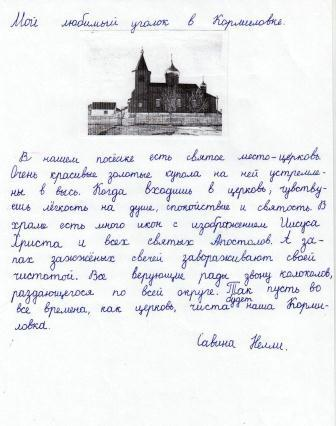 Мой любимый уголок в Кормиловке.
В нашем посёлке есть святое место-церковь.
Очень красивые золотые купола на ней устремле-
ны в высь. Когда входишь в церковь, чувству-
ешь лёгкость на душе, спокойствие и святость. В
храме есть много икон с изображением Иисуса
Христа и всех святых Апостолов. А за-
пах зажжёных свечей завораживают своей
чистотой. Все верующие рады звону колоколов,
раздающегося по всей округе. Так пусть во
будет
все времена, как церковь, чиста наша Корми-
ловка.
Савина Нелли.